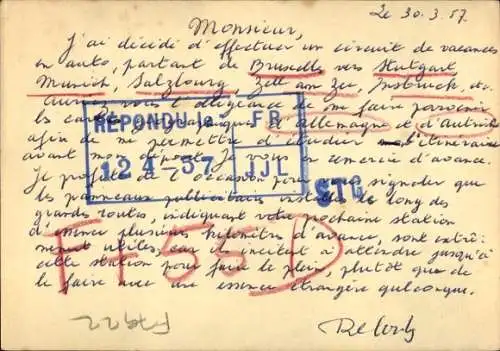 Le 30.3.57
Monsieur,
J'ai décidé d'effectuer un circuit de vacances
en auto, partant de Bruxelles vers Stutgart
Munich, Salzbourg, Zell am Zee, Insbruck, etc.
Auriez-vous l'obligeance de me faire parvenir
les cartes d'Allemagne et d'Autriche
afin de me permettre d'étudier l'itinéraire
avant mon départ. Je vous en remercie d'avance.
Je profite de l'occasion pour vous signaler que
les panneaux publicitaires installés le long des
grandes routes, indiquant votre prochaine station
d'essence plusieurs kilomètres d'avance, sont extrê-
mement utiles, car ils incitent à attendre jusqu'à
cette station pour faire le plein, plutôt que de
le faire avec une essence étrangère quelconque.
REPONDU le: FR
12 4-57 AJL
STG